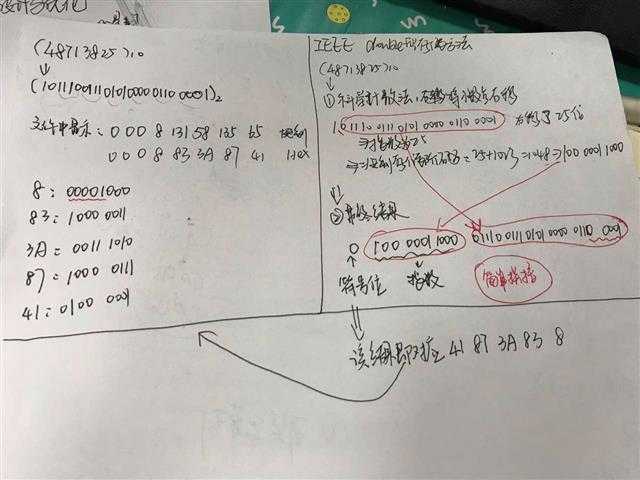 设计与优化
(48713825)10
(1011100111010100000110 0001)2
文件中显示: 0 0 0 8 131 58 135 65 十进制
0 0 0 8 83 3A 87 41 Hex
8: 00001000
83: 1000 0011
3A = 0011 1010
87: 1000 0111
41: 0100 0001
IEEE double
(48713825)10
① 科学计数法
1.01110 0111 0101 0000 0110 0001 右移了25位
⇒指数为25
=25+1023=1048⇒100 0001 1000
②
0 100 0001 1000 01110 0111 0101 0000 0110 0001
符号位 指数 简单拼接
该结果即对应 41 87 3A 83 8